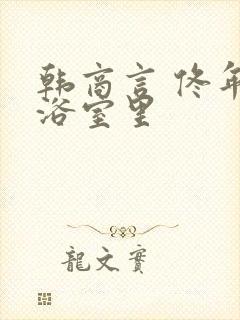 韩商言 佟年
浴室里
龍文實